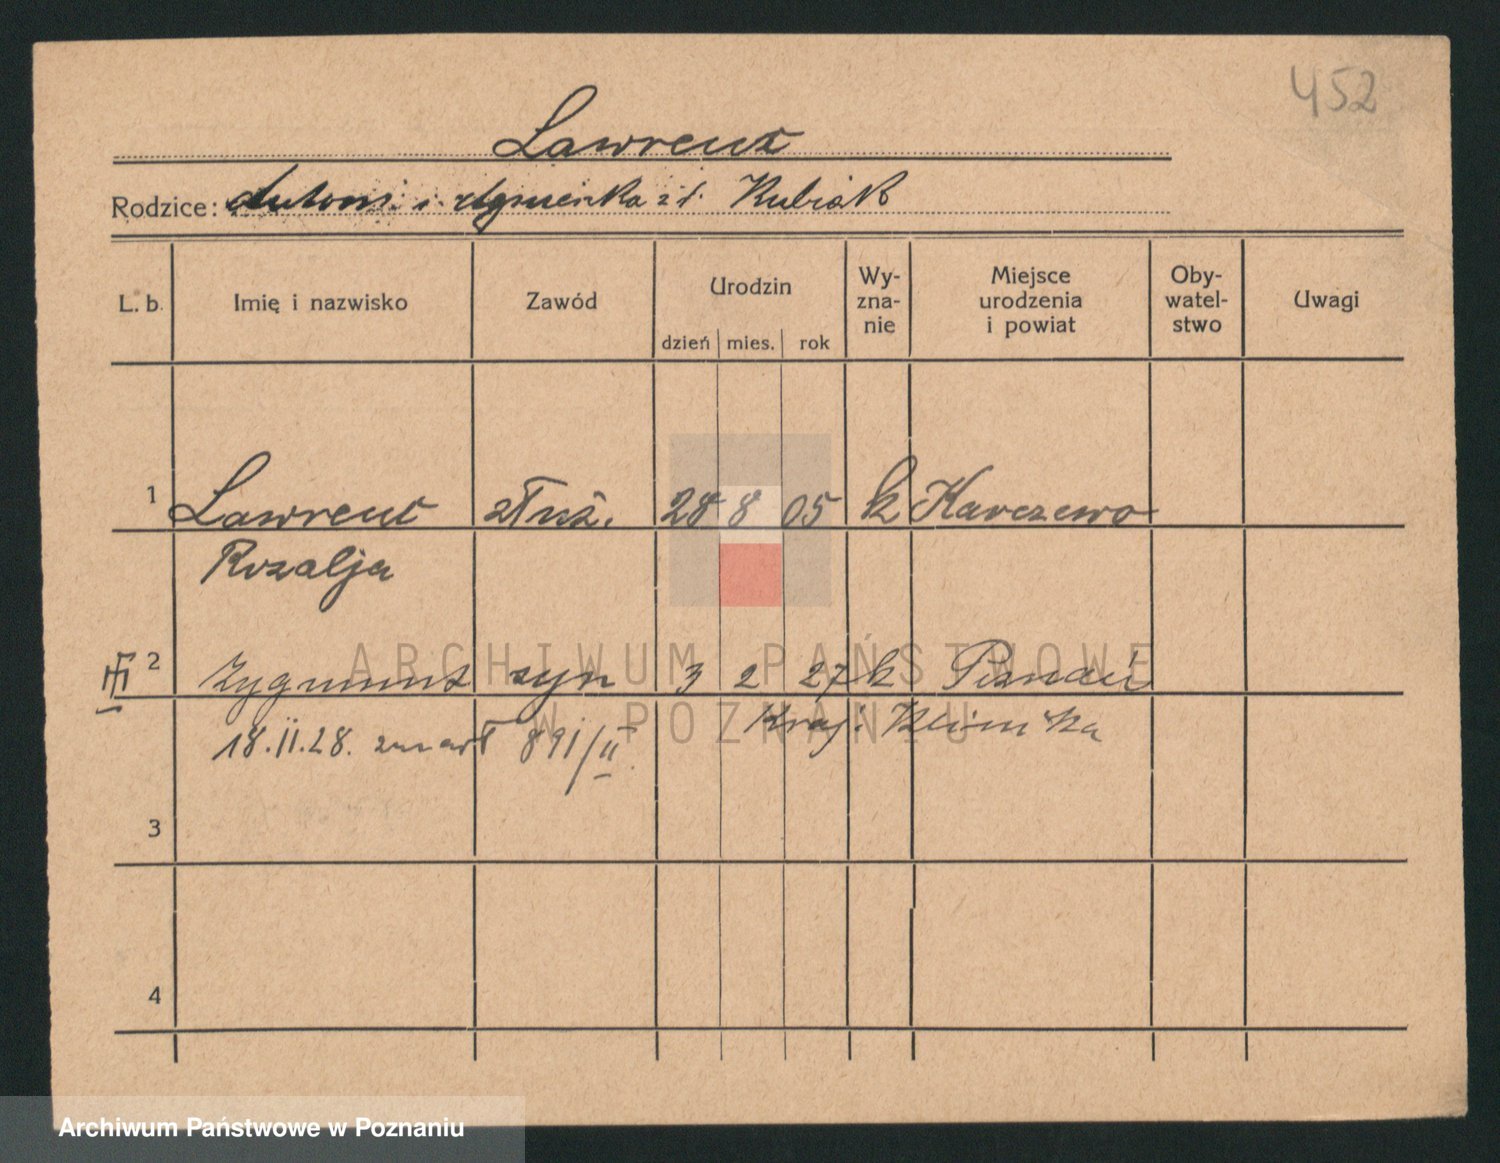 452
Lawrenz
Rodzice: Antoni i Agnieszka z d. Kubiak
L. b. Imię i nazwisko Zawód Urodzin dzień mies. rok Wy-zna-nie Miejsce urodzenia i powiat Oby-watel-stwo Uwagi
1 Lawrenz służ. 28 8 05 k Karczewo
Rozalja
2 Zygmunt syn 3 2 27 k Poznań
18.II.28. zmarł 891/II Kraj. Klinika
3
4
ARCHIWUM PAŃSTWOWE
W POZNANIU
Archiwum Państwowe w Poznaniu